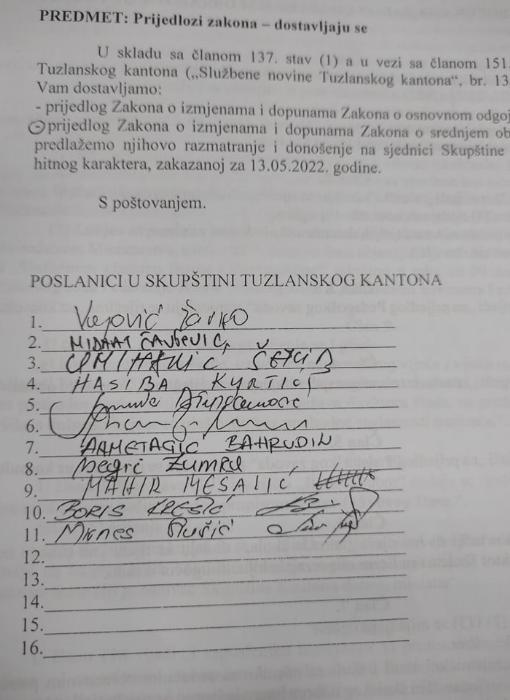 PREDMET: Prijedlozi zakona – dostavljaju se
U skladu sa članom 137. stav (1) a u vezi sa članom 151.
Tuzlanskog kantona („Službene novine Tuzlanskog kantona“, br. 13
Vam dostavljamo:
- prijedlog Zakona o izmjenama i dopunama Zakona o osnovnom odgoj
- prijedlog Zakona o izmjenama i dopunama Zakona o srednjem ob
predlažemo njihovo razmatranje i donošenje na sjednici Skupštine
hitnog karaktera, zakazanoj za 13.05.2022. godine.
S poštovanjem.
POSLANICI U SKUPŠTINI TUZLANSKOG KANTONA
1. Vujović Žarko
2. MIDHAT ČAUŠEVIĆ
3.
4. HASIBA KURTIĆ
5.
6.
7. AHMETAGIĆ BAHRUDIN
8. Zumra
9. MAHIR MEŠALIĆ
10. BORIS KREŠIĆ
11. Mirnes
12.
13.
14.
15.
16.